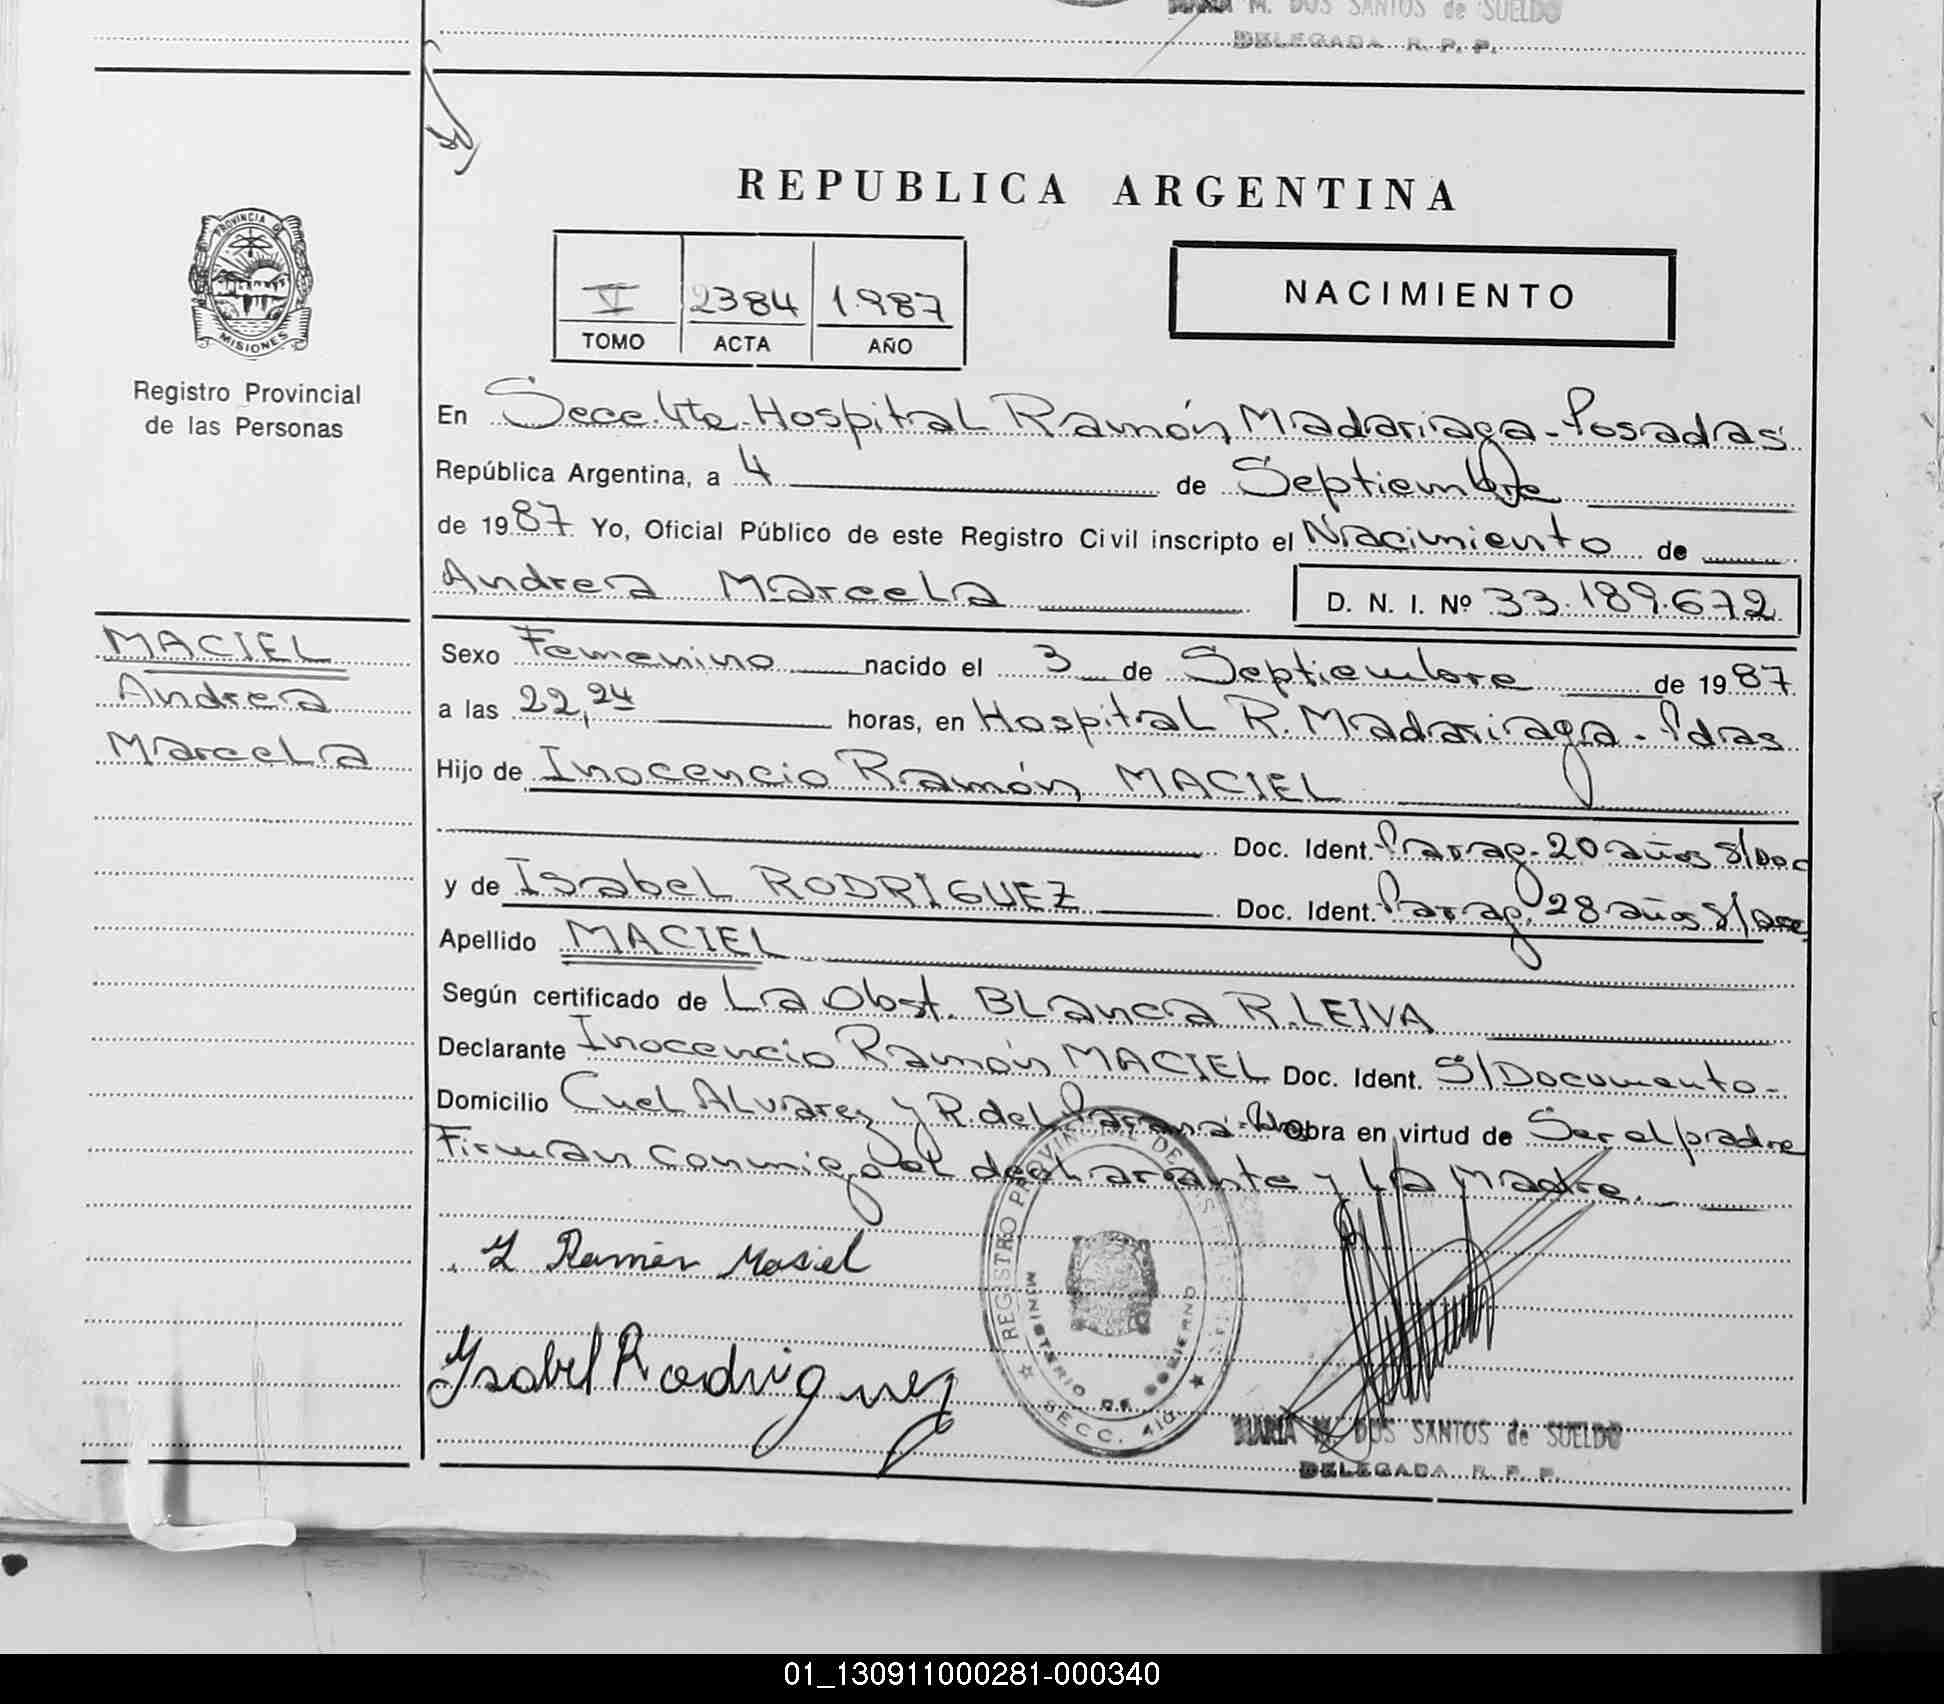 MARIA M. DOS SANTOS de SUELDO
DELEGADA R. P. P.
PROVINCIA DE
MISIONES
Registro Provincial
de las Personas
MACIEL
Andrea
Marcela
REPUBLICA ARGENTINA
V 2384 1.987
TOMO ACTA AÑO
NACIMIENTO
En Secc. 4ta. Hospital Ramón Madariaga - Posadas
República Argentina, a 4 de Septiembre
de 1987 Yo, Oficial Público de este Registro Civil inscripto el Nacimiento de
Andrea Marcela D. N. I. Nº 33.189.672
Sexo Femenino nacido el 3 de Septiembre de 1987
a las 22,24 horas, en Hospital R. Madariaga - Pdas
Hijo de Inocencio Ramón MACIEL
Doc. Ident. Parag. 20 años S/Doc
y de Isabel RODRIGUEZ Doc. Ident. Parag. 28 años S/Doc
Apellido MACIEL
Según certificado de La Obst. BLanca R. LEIVA
Declarante Inocencio Ramón MACIEL Doc. Ident. S/Documento-
Domicilio Cnel ALvarez y R. del Paraná - Obra en virtud de Ser el padre
Firman conmigo el declarante y La Madre.
I Ramón Masiel
Ysabel Rodriguez
REGISTRO PROVINCIAL DE LAS PERSONAS
MINISTERIO DE GOBIERNO
SECC. 4ta.
MARIA M. DOS SANTOS de SUELDO
DELEGADA R. P. P.
01_130911000281-000340